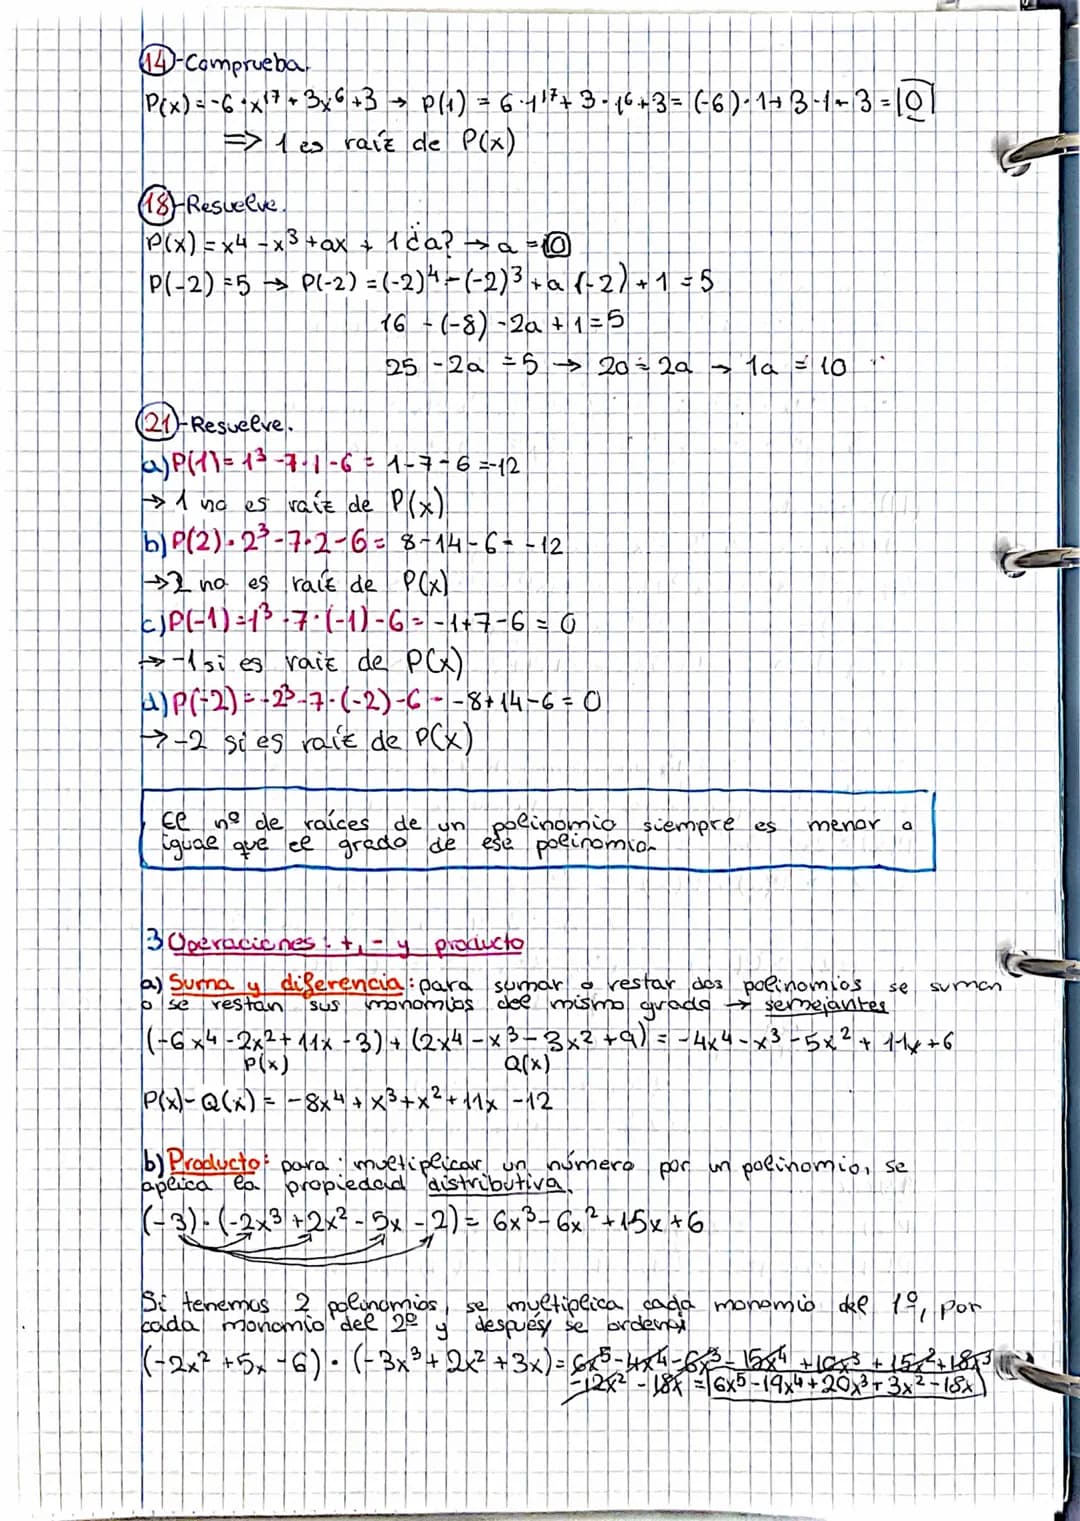 14-Comprueba.
P(x) = -6·x¹⁷ + 3x⁶ + 3 → P(1) = 6·1¹⁷ + 3·1⁶ + 3 = (-6)·1 + 3·1 + 3 = 0
⇒ 1 es raíz de P(x)
18-Resuelve.
P(x) = x⁴ - x³ + ax + 1 ¿a? → a = 10
P(-2) = 5 → P(-2) = (-2)⁴ - (-2)³ + a (-2) + 1 = 5
16 - (-8) - 2a + 1 = 5
25 - 2a = 5 → 20 = 2a → 1a = 10
21-Resuelve.
a) P(1) = 1³ - 7·1 - 6 = 1 - 7 - 6 = -12
→ 1 no es raíz de P(x)
b) P(2) = 2³ - 7·2 - 6 = 8 - 14 - 6 = -12
→ 2 no es raíz de P(x)
c) P(-1) = 1³ - 7·(-1) - 6 = -1 + 7 - 6 = 0
→ -1 si es raiz de P(x)
d) P(-2) = -2³ - 7·(-2) - 6 = -8 + 14 - 6 = 0
→ -2 si es raíz de P(x)
El nº de raíces de un polinomio siempre es menor o
igual que el grado de ese polinomio.
3 Operaciones: +, - y producto
a) Suma y diferencia: para sumar o restar dos polinomios se suman
o se restan sus monomios del mismo grado → semejantes
(-6x⁴ - 2x² + 11x - 3) + (2x⁴ - x³ - 3x² + 9) = -4x⁴ - x³ - 5x² + 11x + 6
P(x) Q(x)
P(x) - Q(x) = -8x⁴ + x³ + x² + 11x - 12
b) Producto: para multiplicar un número por un polinomio, se
aplica la propiedad distributiva.
(-3)·(-2x³ + 2x² - 5x - 2) = 6x³ - 6x² + 15x + 6
Si tenemos 2 polinomios, se multiplica cada monomio del 1º, por
cada monomio del 2º y después se ordena
(-2x² + 5x - 6)·(-3x³ + 2x² + 3x) = 6x⁵ - 4x⁴ - 6x³ - 15x⁴ + 10x³ + 15x² + 18x³
- 12x² - 18x = 6x⁵ - 19x⁴ + 20x³ + 3x² - 18x